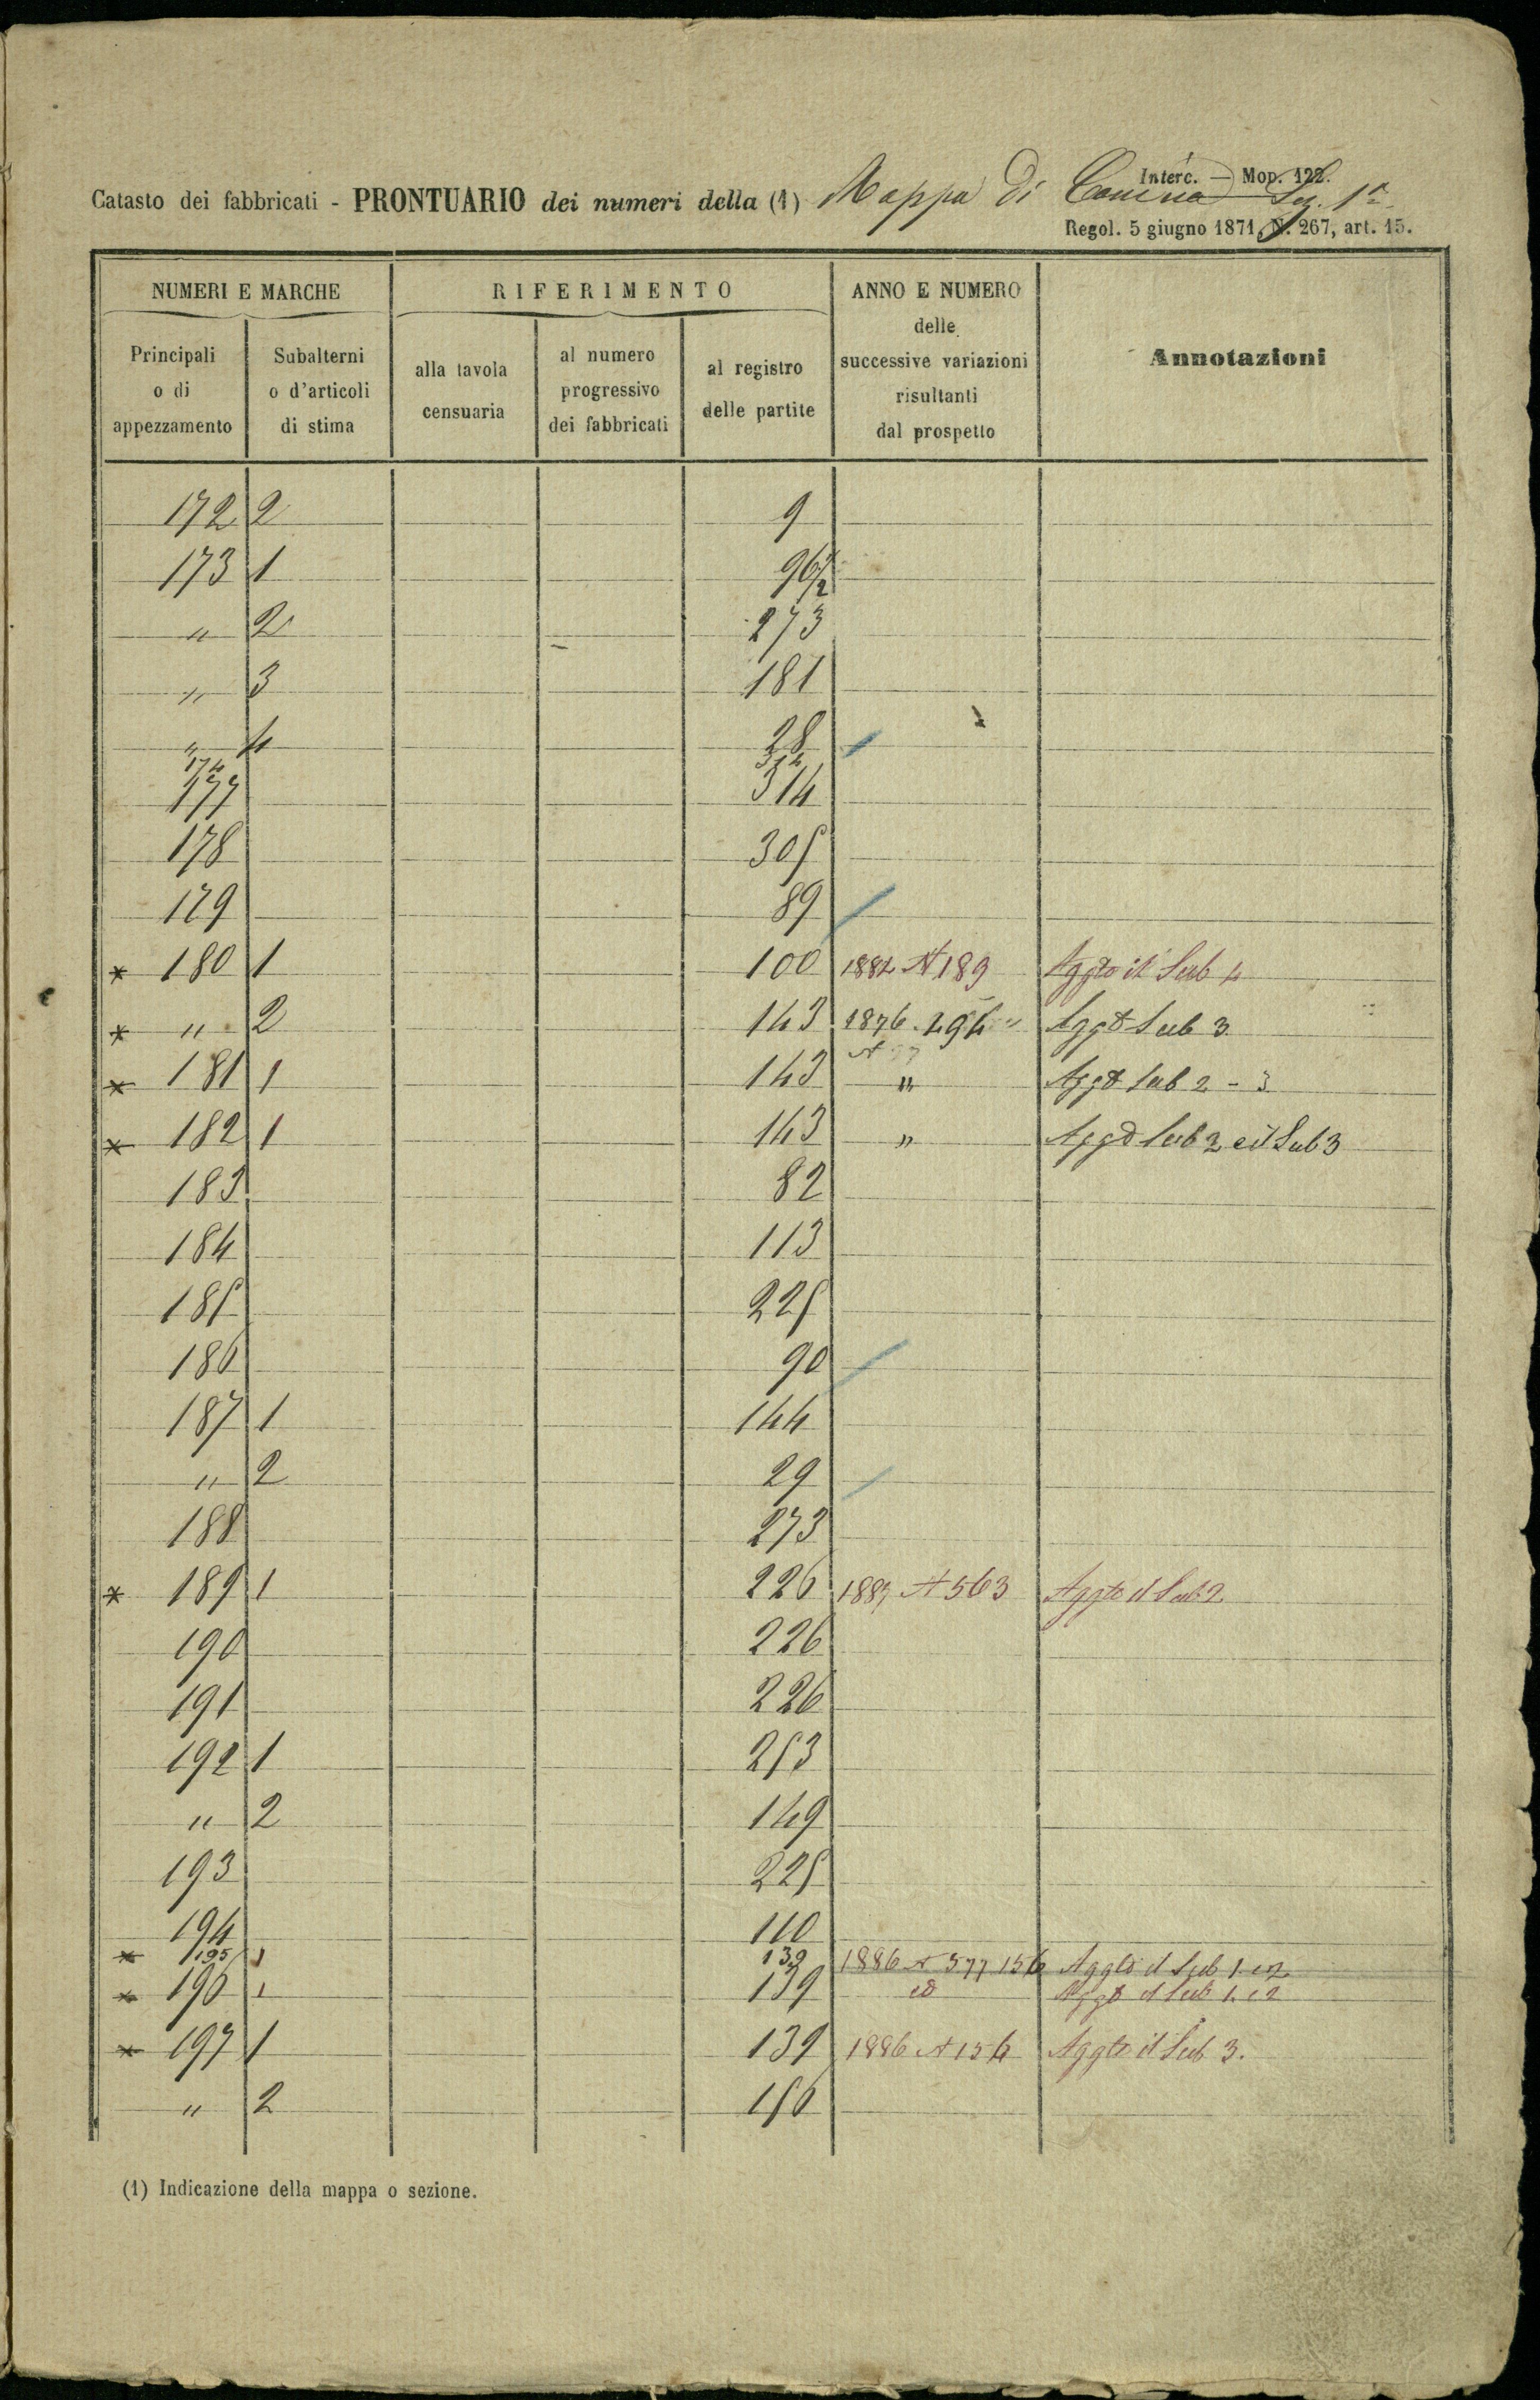 Interc. — Mop. 122.
Catasto dei fabbricati - PRONTUARIO dei numeri della (1) Mappa di Sez. 1ª
Regol. 5 giugno 1871, N. 267, art. 15.
NUMERI E MARCHE RIFERIMENTO ANNO E NUMERO delle successive variazioni risultanti dal prospetto Annotazioni
Principali o di appezzamento Subalterni o d'articoli di stima alla tavola censuaria al numero progressivo dei fabbricati al registro delle partite
172 2 9
173 1 96/2
" 2 273
" 3 181
" 4 28
174 312
177 314
178 305
179 89
* 180 1 100 1882 N 189 Aggto il Sub 4
* " 2 143 1876 294 Aggto Sub 3
* 181 1 143 " Aggto Sub 2 - 3
* 182 1 143 " Aggto Sub 2 ed Sub 3
183 82
184 113
185 225
186 90
187 1 144
" 2 29
188 273
* 189 1 226 1887 N 563 Aggto il Sub 2
190 226
191 226
192 1 253
" 2 149
193 225
194 110
* 195 1 139 1886 N 377 156 Aggto il Sub 1 e 2
* 196 1 139 id Aggto il Sub 1 e 2
* 197 1 139 1886 N 154 Aggto il Sub 3.
" 2 156
(1) Indicazione della mappa o sezione.